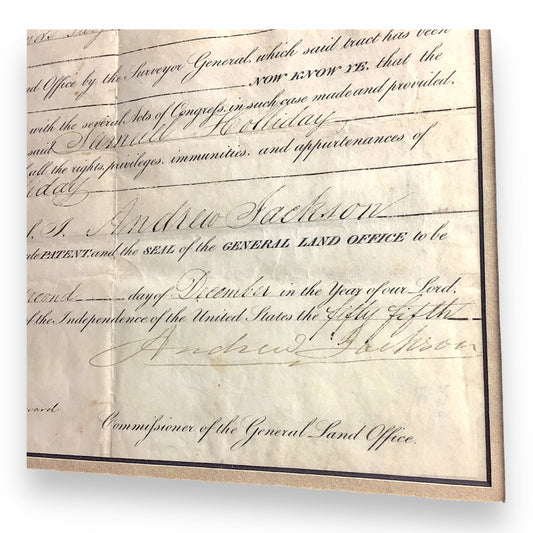 nd Office by the Surveyor General, which said tract has been
NOW KNOW YE, that the
with the several Acts of Congreſs, in such case made and provided,
said Samuel Holliday
all the rights, privileges, immunities, and appurtenances of
day
I, Andrew Jackson
de PATENT, and the SEAL of the GENERAL LAND OFFICE to be
second day of December in the Year of our Lord,
f the Independence of the United States the fifty fifth
Andrew Jackson
Commiſsioner of the General Land Office.